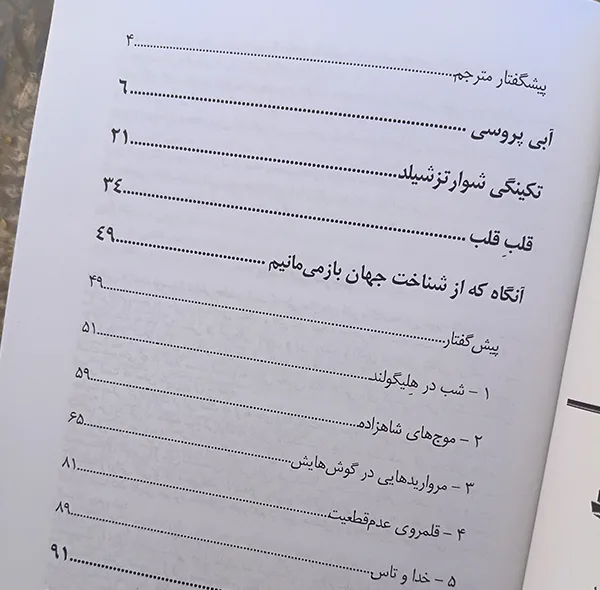 پیشگفتار مترجم....................۴
آبی پروسی....................۶
تکینگی شوارتزشیلد....................۲۱
قلبِ قلب....................۳۴
آنگاه که از شناخت جهان بازمی‌مانیم....................۴۹
پیش‌گفتار....................۴۹
۱ - شب در هِلیگولند....................۵۱
۲ - موج‌های شاهزاده....................۵۹
۳ - مرواریدهایی در گوش‌هایش....................۶۵
۴ - قلمروی عدم‌قطعیت....................۸۱
۵ - خدا و تاس....................۸۹
....................۹۱